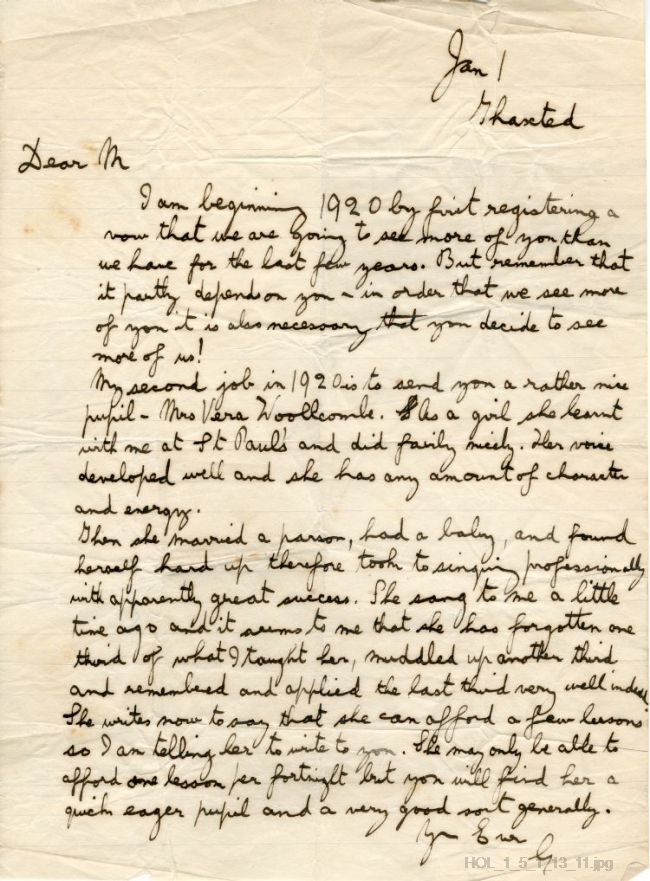 Jan 1
Thaxted
Dear M
I am beginning 1920 by first registering a
vow that we are going to see more of you than
we have for the last few years. But remember that
it partly depends on you – in order that we see more
of you it is also necessary that you decide to see
more of us!
My second job in 1920 is to send you a rather nice
pupil – Mrs Vera Woollcombe. As a girl she learnt
with me at St Paul's and did fairly nicely. Her voice
developed well and she has any amount of character
and energy.
Then she married a parson, had a baby, and found
herself hard up therefore took to singing professionally
with apparently great success. She sang to me a little
time ago and it seems to me that she has forgotten one
third of what I taught her, muddled up another third
and remembered and applied the last third very well indeed.
She writes now to say that she can afford a few lessons
so I am telling her to write to you. She may only be able to
afford one lesson per fortnight but you will find her a
quick eager pupil and a very good sort generally.
Yr Ever
G
HOL_1_5_1_13_11.jpg